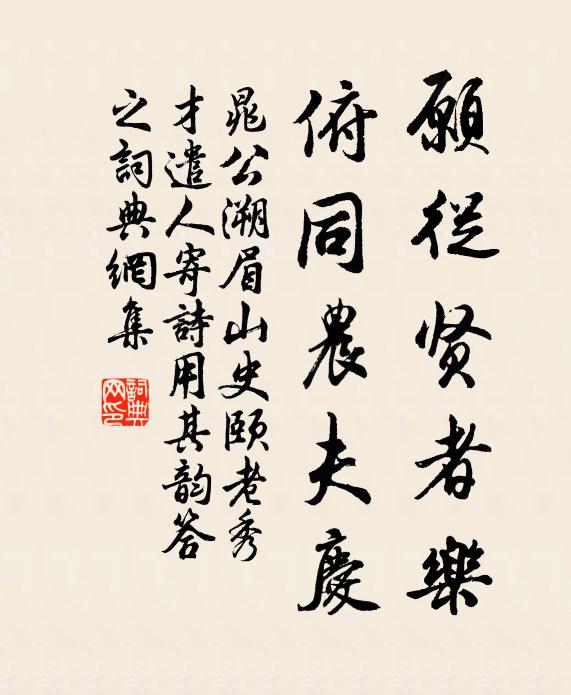 願從贤者樂
俯同農夫慶
晁公溯眉山史頤老秀
才遣人寄詩用其韵答
之詞典網集
詞典网印